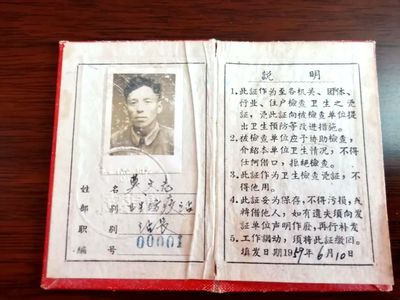 姓名
部别 卫生防疫站
职别 站长
编号 00001
說明
1.此証作为至各机关、团体、
行业、住户檢查卫生之凭
証，凭此証向被檢查单位提
出卫生預防等改进措施。
2.被檢查单位应予协助檢查，
介紹本单位卫生情况，不得
任何借口，拒絕檢查。
3.此証作为卫生檢查凭証，不
得他用。
4.此証妥为保存，不得污損，或
轉借他人，如有遺失須向发
証单位声明作廢，再行补发
5.工作調动，須将此証繳回。
填发日期1959年6月10日